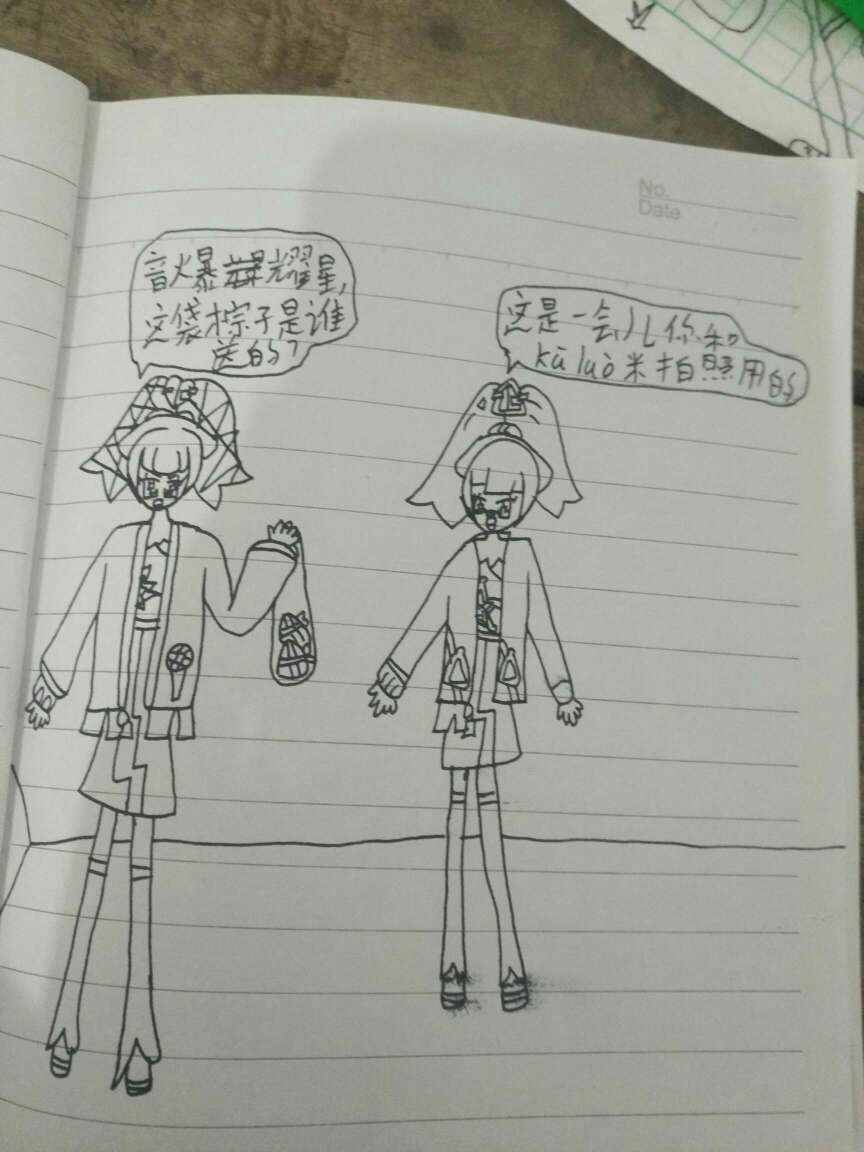 No.
Date
音火爆耀星,
这袋粽子是谁
送的?
这是一会儿你和
kū luò米拍照用的